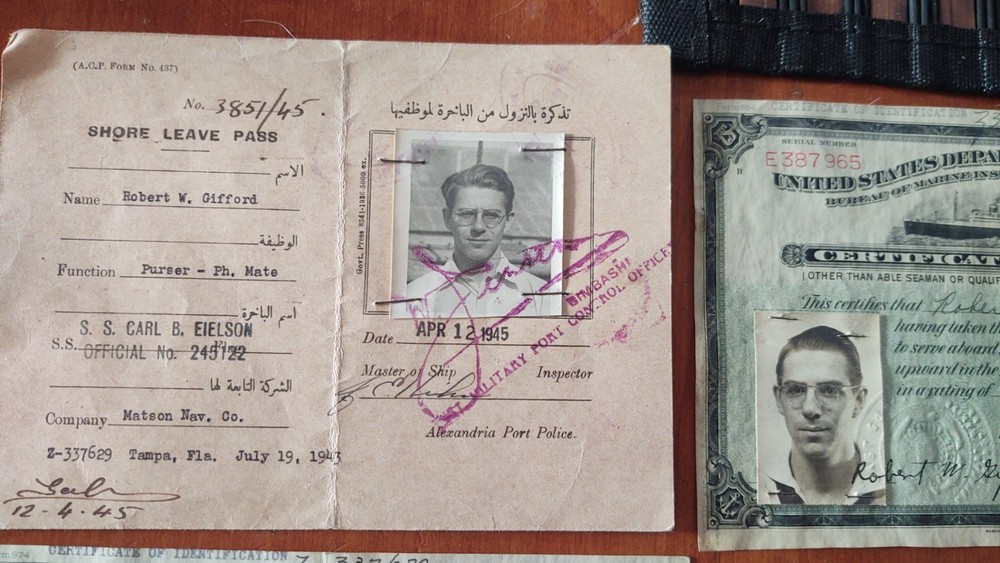 (A.C.P. FORM NO. 437)
No. 3851/45.
SHORE LEAVE PASS
الاسم
Name Robert W. Gifford
الوظيفة
Function Purser - Ph. Mate
اسم الباخرة
S. S. CARL B. EIELSON
S.S. OFFICIAL No. 245122
الشركة التابعة لها
Company Matson Nav. Co.
Z-337629 Tampa, Fla. July 19, 1943
12-4-45
تذكرة بالنزول من الباخرة لموظفيها
Govt. Press
Date APR 12 1945
Master of Ship Inspector
BIMBASHI
MILITARY PORT CONTROL OFFICER
Alexandria Port Police.
CERTIFICATE OF IDENTIFICATION
SERIAL NUMBER
E387965
B
UNITED STATES DEPA
BUREAU OF MARINE INS
CERTIFICAT
(OTHER THAN ABLE SEAMAN OR QUALIF
This certifies that Rober
having taken th
to serve aboard
upward in the
in a rating of
Robert W. Gi
m 974 CERTIFICATE OF IDENTIFICATION Z 337629